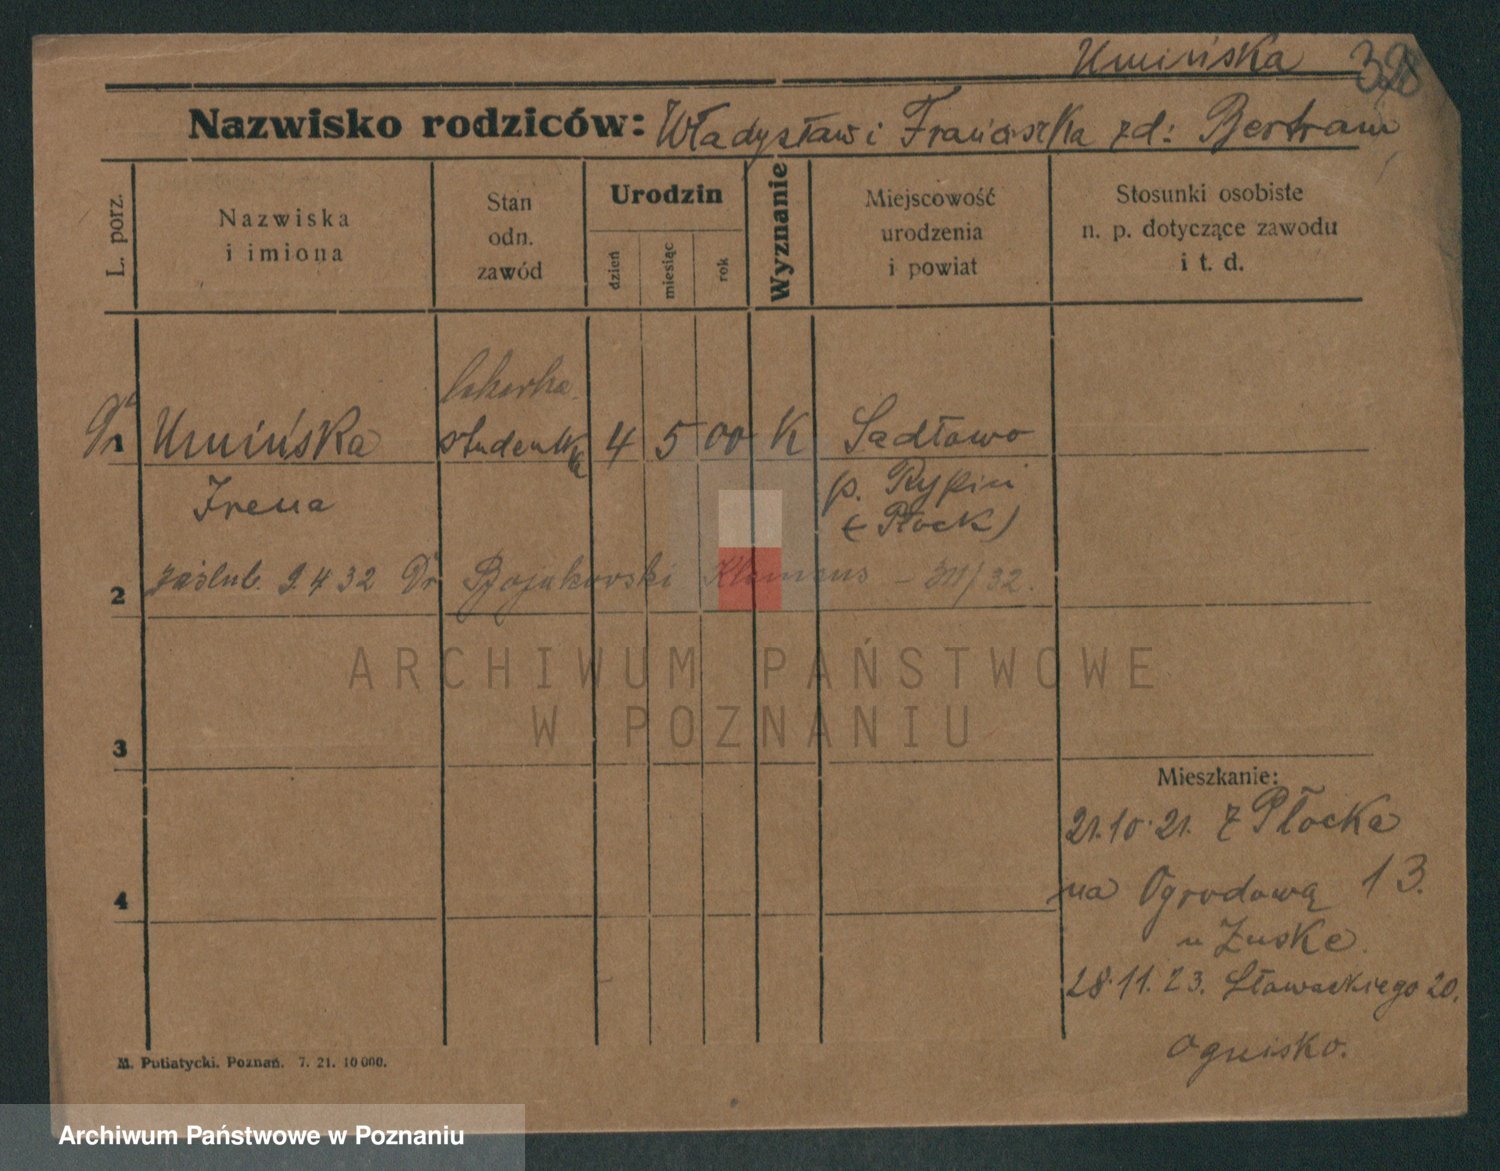 Umińska 328
Nazwisko rodziców: Władysław i Franciszka zd: Bertram
L. porz.
Nazwiska
i imiona
Stan
odn.
zawód
Urodzin
dzień
miesiąc
rok
Wyznanie
Miejscowość
urodzenia
i powiat
Stosunki osobiste
n. p. dotyczące zawodu
i t. d.
lekarka
Dr 1 Umińska studentka 4 5 00 K Sadłowo
Irena p. Rypin
(Płock)
2 zaślub. 9 4 32 Dr Bojakowski Klemens – /32.
ARCHIWUM PAŃSTWOWE
W POZNANIU
3
4
Mieszkanie:
21.10.21. z Płocka
na Ogrodową 13.
u Zuske.
28.11.23. Słowackiego 20.
Ognisko.
M. Putiatycki. Poznań. 7. 21. 10 000.
Archiwum Państwowe w Poznaniu